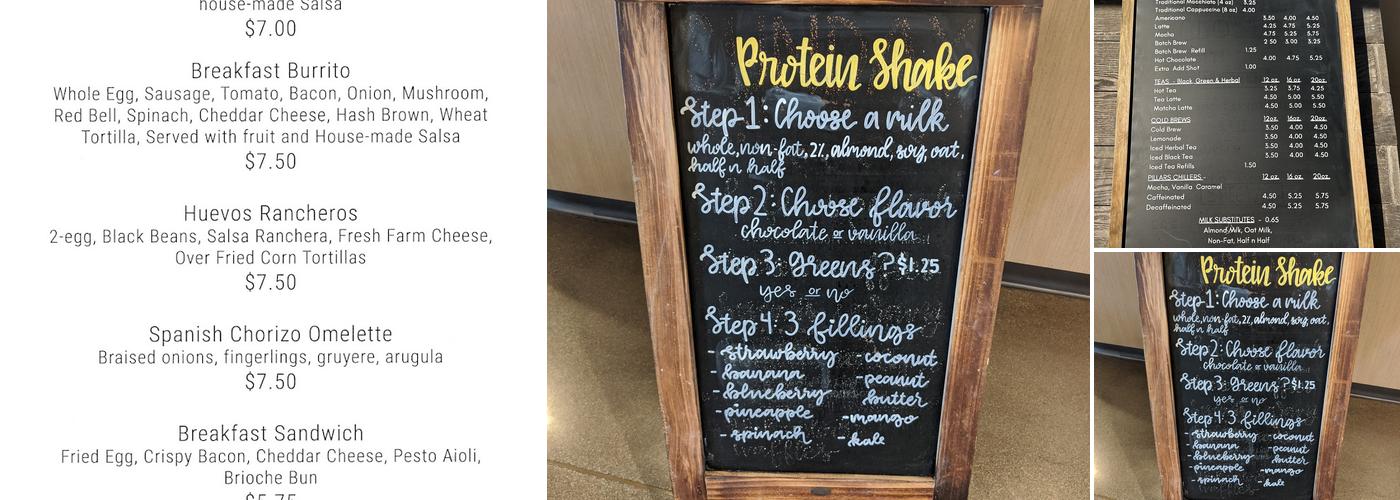 house-made Salsa
$7.00
Breakfast Burrito
Whole Egg, Sausage, Tomato, Bacon, Onion, Mushroom,
Red Bell, Spinach, Cheddar Cheese, Hash Brown, Wheat
Tortilla, Served with fruit and House-made Salsa
$7.50
Huevos Rancheros
2-egg, Black Beans, Salsa Ranchera, Fresh Farm Cheese,
Over Fried Corn Tortillas
$7.50
Spanish Chorizo Omelette
Braised onions, fingerlings, gruyere, arugula
$7.50
Breakfast Sandwich
Fried Egg, Crispy Bacon, Cheddar Cheese, Pesto Aioli,
Brioche Bun
$5.75
Protein Shake
Step 1: Choose a milk
whole, non-fat, 2%, almond, soy, oat,
half n half
Step 2: Choose flavor
chocolate or vanilla
Step 3: Greens? $1.25
yes or no
Step 4: 3 fillings
- strawberry - coconut
- banana - peanut
- blueberry butter
- pineapple - mango
- spinach - kale
Traditional Macchiato (4 oz) 3.25
Traditional Cappuccino (8 oz) 4.00
Americano 3.50 4.00 4.50
Latte 4.25 4.75 5.25
Mocha 4.75 5.25 5.75
Batch Brew 2.50 3.00 3.25
Batch Brew Refill 1.25
Hot Chocolate 4.00 4.75 5.25
Extra Add Shot 1.00
TEAS - Black, Green & Herbal 12 oz. 16oz. 20oz.
Hot Tea 3.25 3.75 4.25
Tea Latte 4.50 5.00 5.50
Matcha Latte 4.50 5.00 5.50
COLD BREWS 12oz. 16oz. 20oz.
Cold Brew 3.50 4.00 4.50
Lemonade 3.50 4.00 4.50
Iced Herbal Tea 3.50 4.00 4.50
Iced Black Tea 3.50 4.00 4.50
Iced Tea Refills 1.50
PILLARS CHILLERS - 12 oz. 16 oz. 20oz.
Mocha, Vanilla Caramel
Caffeinated 4.50 5.25 5.75
Decaffeinated 4.50 5.25 5.75
MILK SUBSTITUTES - 0.65
Almond Milk, Oat Milk,
Non-Fat, Half n Half
Protein Shake
Step 1: Choose a milk
whole, non-fat, 2%, almond, soy, oat,
half n half
Step 2: Choose flavor
chocolate or vanilla
Step 3: Greens? $1.25
yes or no
Step 4: 3 fillings
- strawberry - coconut
- banana - peanut
- blueberry butter
- pineapple - mango
- spinach - kale